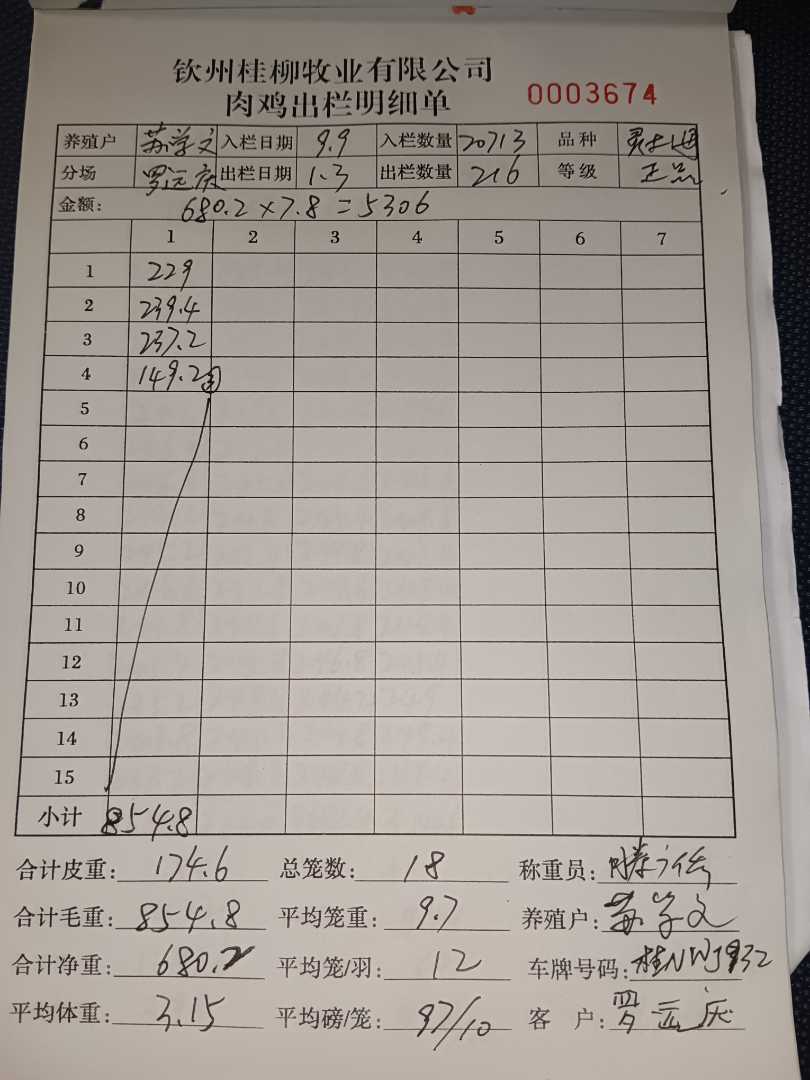 钦州桂柳牧业有限公司
肉鸡出栏明细单 0003674
养殖户 苏学文 入栏日期 9.9 入栏数量 20713 品种
分场 罗远庆 出栏日期 1.3 出栏数量 216 等级 正品
金额: 680.2×7.8=5306
1 2 3 4 5 6 7
1 229
2 239.4
3 237.2
4 149.2
5
6
7
8
9
10
11
12
13
14
15
小计 854.8
合计皮重: 174.6 总笼数: 18 称重员:
合计毛重: 854.8 平均笼重: 9.7 养殖户: 苏学文
合计净重: 680.2 平均笼/羽: 12 车牌号码: 桂NWJ932
平均体重: 3.15 平均磅/笼: 97/10 客 户: 罗远庆